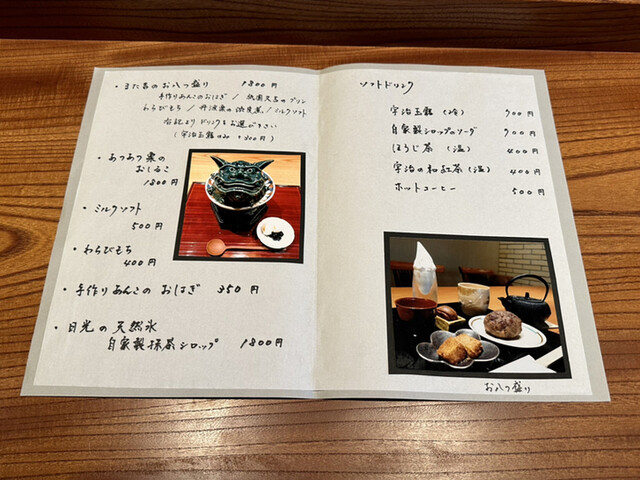 ・また吉のお八つ盛り 1800円
手作りあんこのおはぎ / 祇園又吉のプリン
わらびもち / 丹波栗の渋皮煮 / ミルクソフト
右記よりドリンクをお選び下さい
(宇治玉露のみ +300円)
・あつあつ栗の
おしるこ
1800円
・ミルクソフト
500円
・わらびもち
400円
・手作りあんこの おはぎ 350円
・日光の天然氷
自家製抹茶シロップ 1800円
ソフトドリンク
宇治玉露 (冷) 900円
自家製シロップのソーダ 900円
ほうじ茶 (温) 400円
宇治の和紅茶 (温) 400円
ホットコーヒー 500円
お八つ盛り